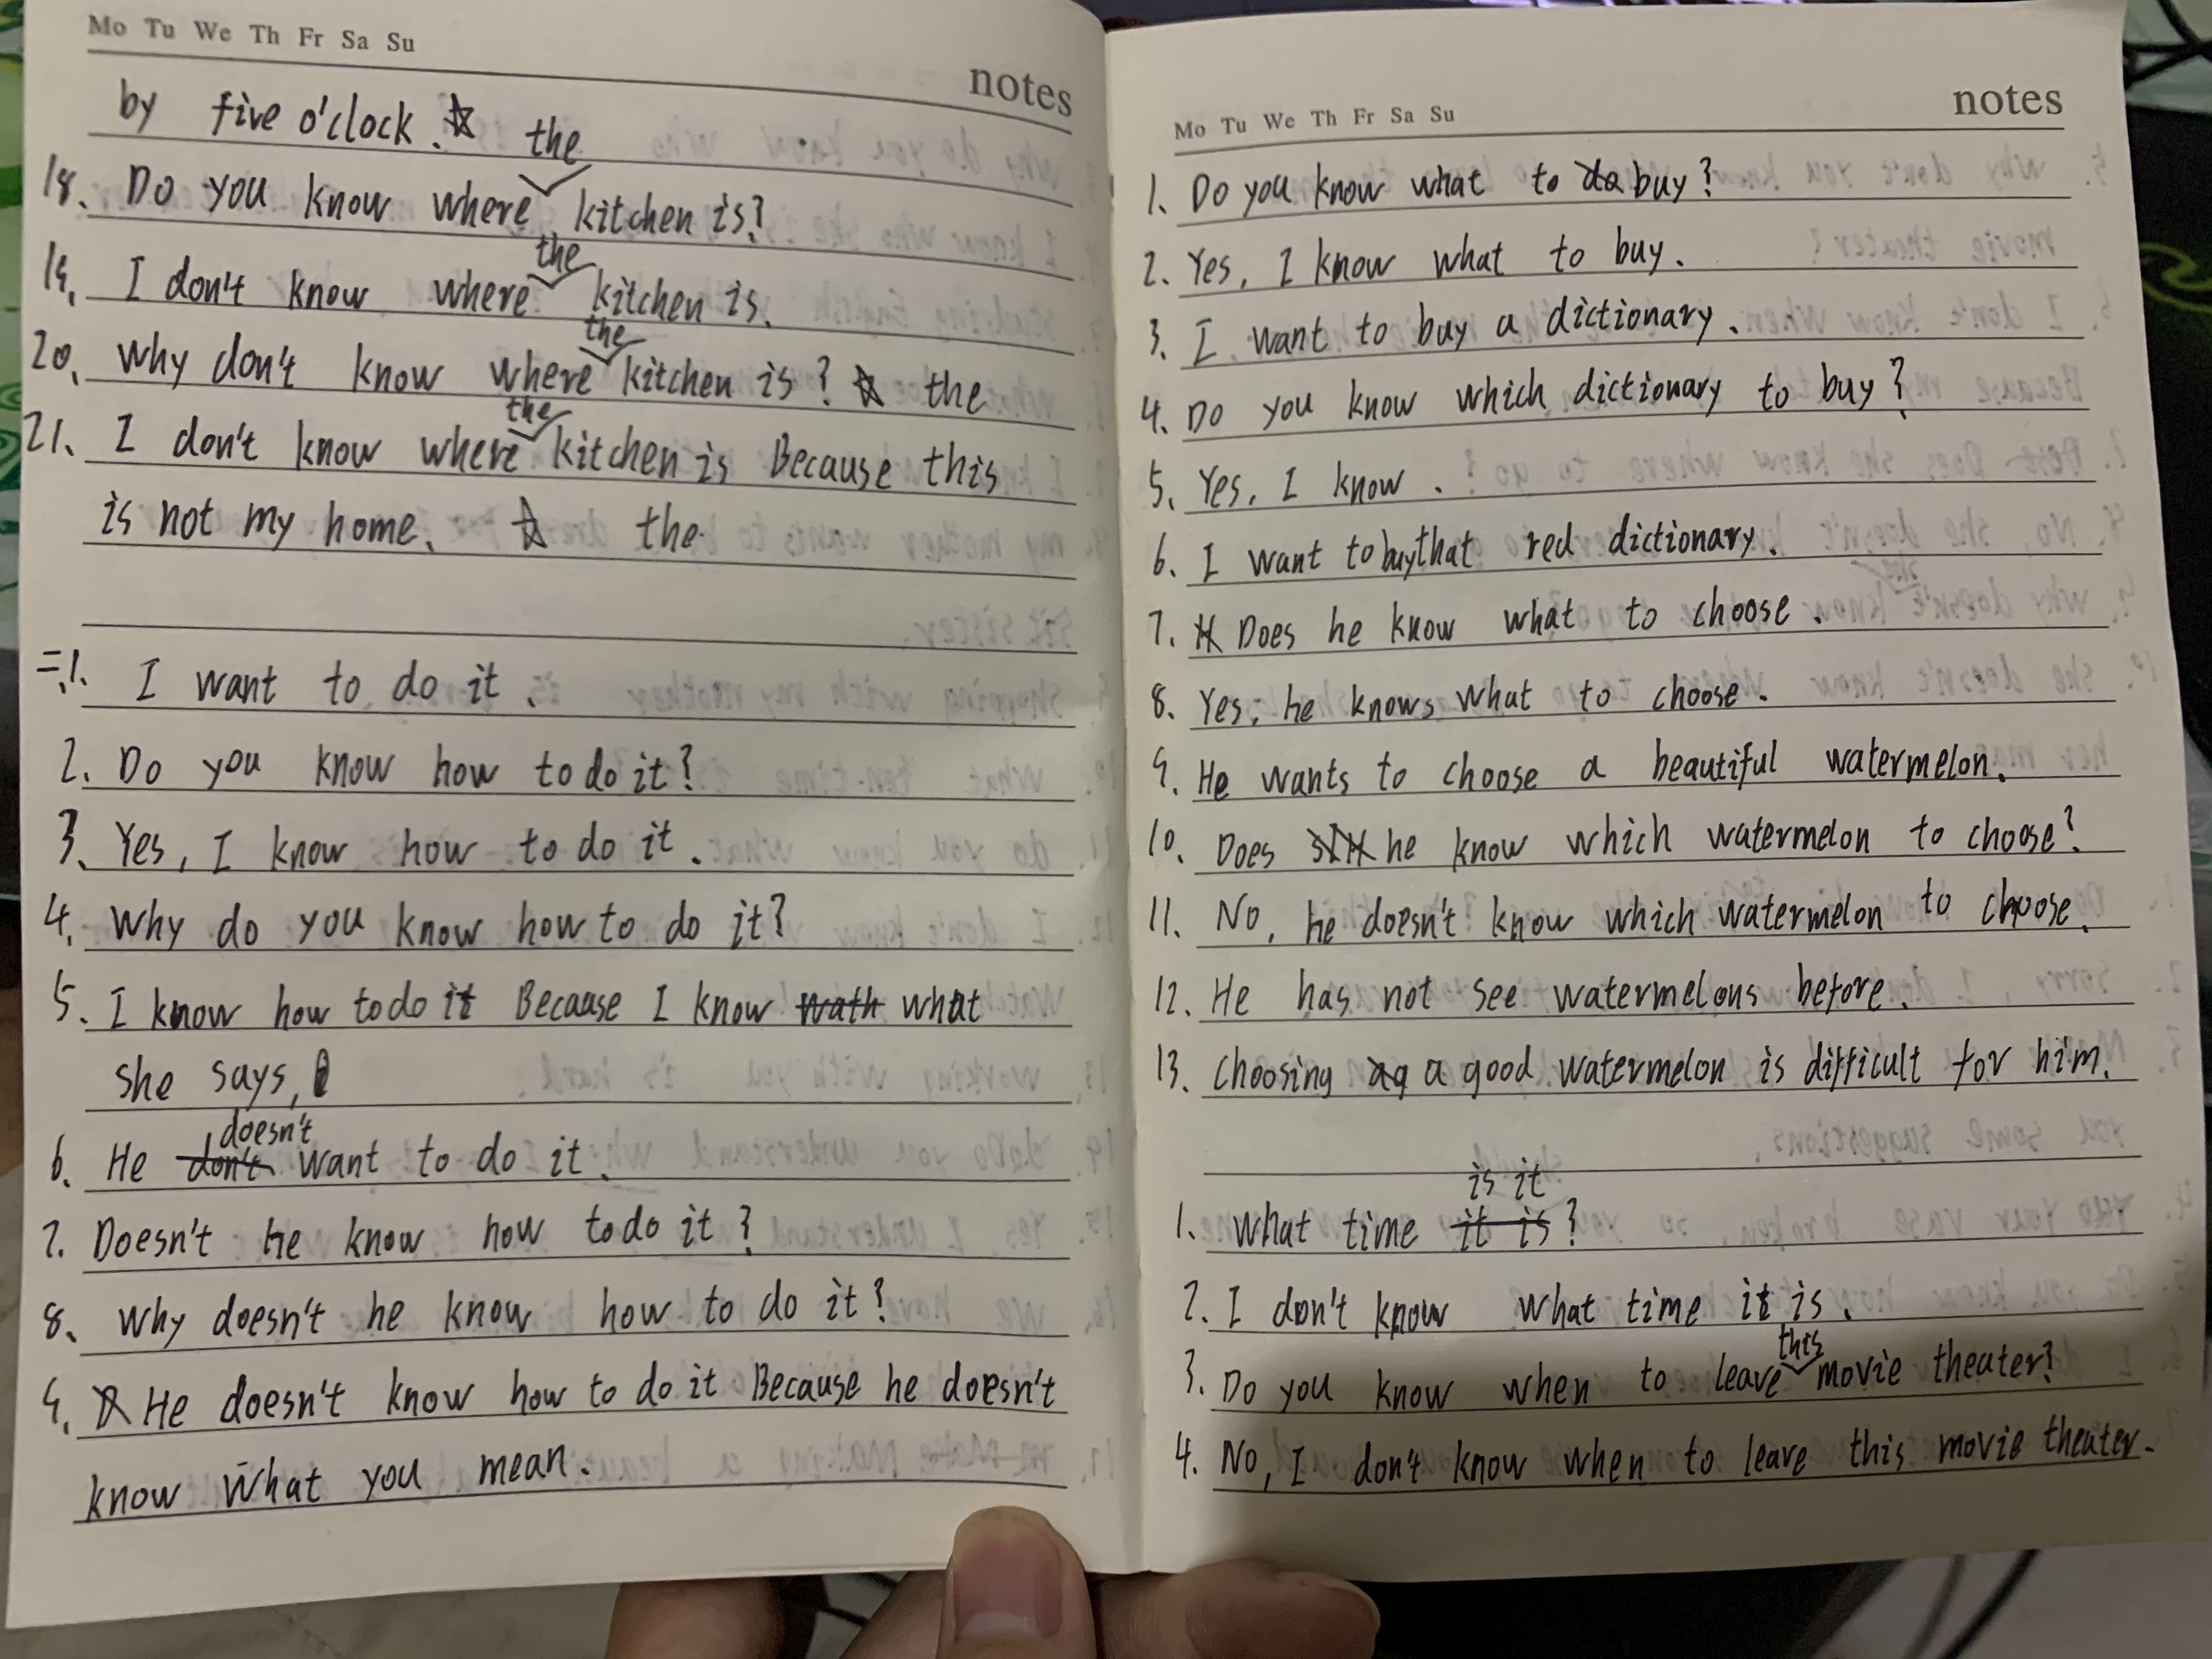 Mo Tu We Th Fr Sa Su
notes
by five o'clock. ☆
18. Do you know where the kitchen is?
19. I don't know where the kitchen is.
20. Why don't know where the kitchen is? ☆ the
21. I don't know where the kitchen is Because this
is not my home. ☆ the
=.1. I want to do it.
2. Do you know how to do it?
3. Yes, I know how to do it.
4. Why do you know how to do it?
5. I know how to do it Because I know wath what
she says,
6. He don't doesn't want to do it.
7. Doesn't he know how to do it?
8. Why doesn't he know how to do it?
9. He doesn't know how to do it Because he doesn't
know what you mean.
Mo Tu We Th Fr Sa Su
notes
1. Do you know what to do buy?
2. Yes, I know what to buy.
3. I want to buy a dictionary.
4. Do you know which dictionary to buy?
5. Yes, I know.
6. I want to buy that red dictionary.
7. Does he know what to choose.
8. Yes, he knows what to choose.
9. He wants to choose a beautiful watermelon.
10. Does he know which watermelon to choose?
11. No, he doesn't know which watermelon to choose.
12. He has not see watermelons before.
13. Choosing ag a good watermelon is difficult for him.
1. What time it is is it?
2. I don't know what time it is.
3. Do you know when to leave this movie theater?
4. No, I don't know when to leave this movie theater.